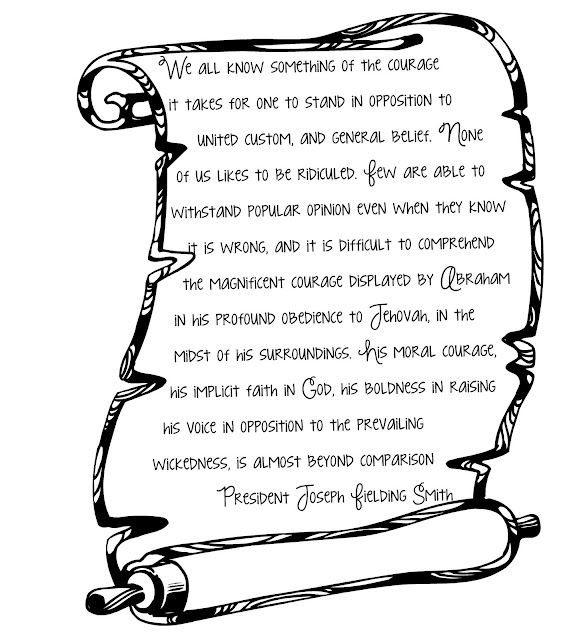 We all know something of the courage
it takes for one to stand in opposition to
united custom, and general belief. None
of us likes to be ridiculed. Few are able to
withstand popular opinion even when they know
it is wrong, and it is difficult to comprehend
the magnificent courage displayed by Abraham
in his profound obedience to Jehovah, in the
midst of his surroundings. His moral courage,
his implicit faith in God, his boldness in raising
his voice in opposition to the prevailing
wickedness, is almost beyond comparison
President Joseph Fielding Smith